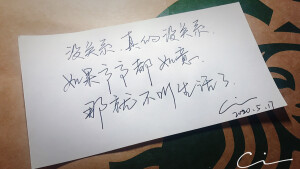 没关系.真的没关系.
如果事事都如意.
那就不叫生活了.
Ci
2020.5.17
Ci